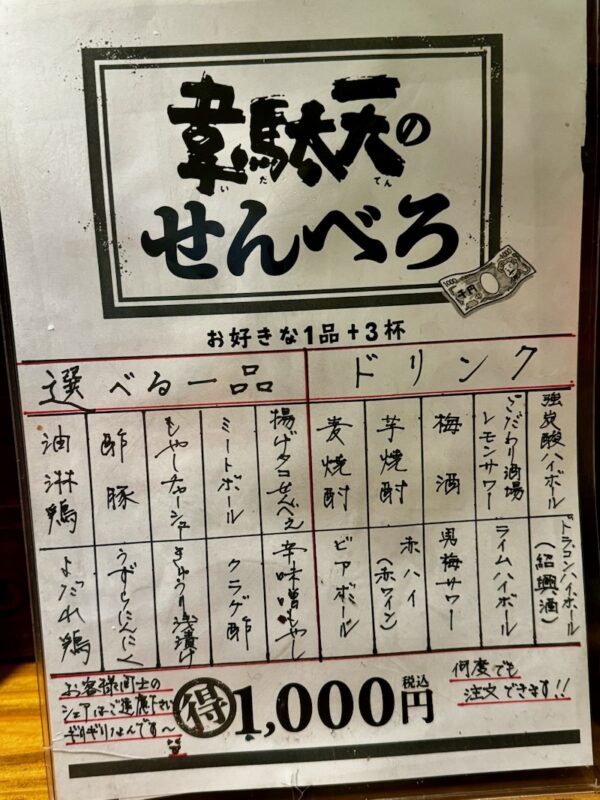 韋駄天の
いだてん
せんべろ
お好きな1品+3杯
選べる一品
ドリンク
強炭酸ハイボール
こだわり酒場レモンサワー
梅酒
芋焼酎
麦焼酎
揚げタコせんべえ
ミートボール
もやしチャーシュー
酢豚
油淋鶏
ドラゴンハイボール(紹興酒)
ライムハイボール
男梅サワー
赤ハイ(赤ワイン)
ビアボール
辛味噌もやし
クラゲ酢
きゅうり浅漬け
うずらにんにく
よだれ鶏
お客様同士の
シェアはご遠慮下さい
ギリギリなんです〜
得 1,000円 税込
何度でも
注文できます!!